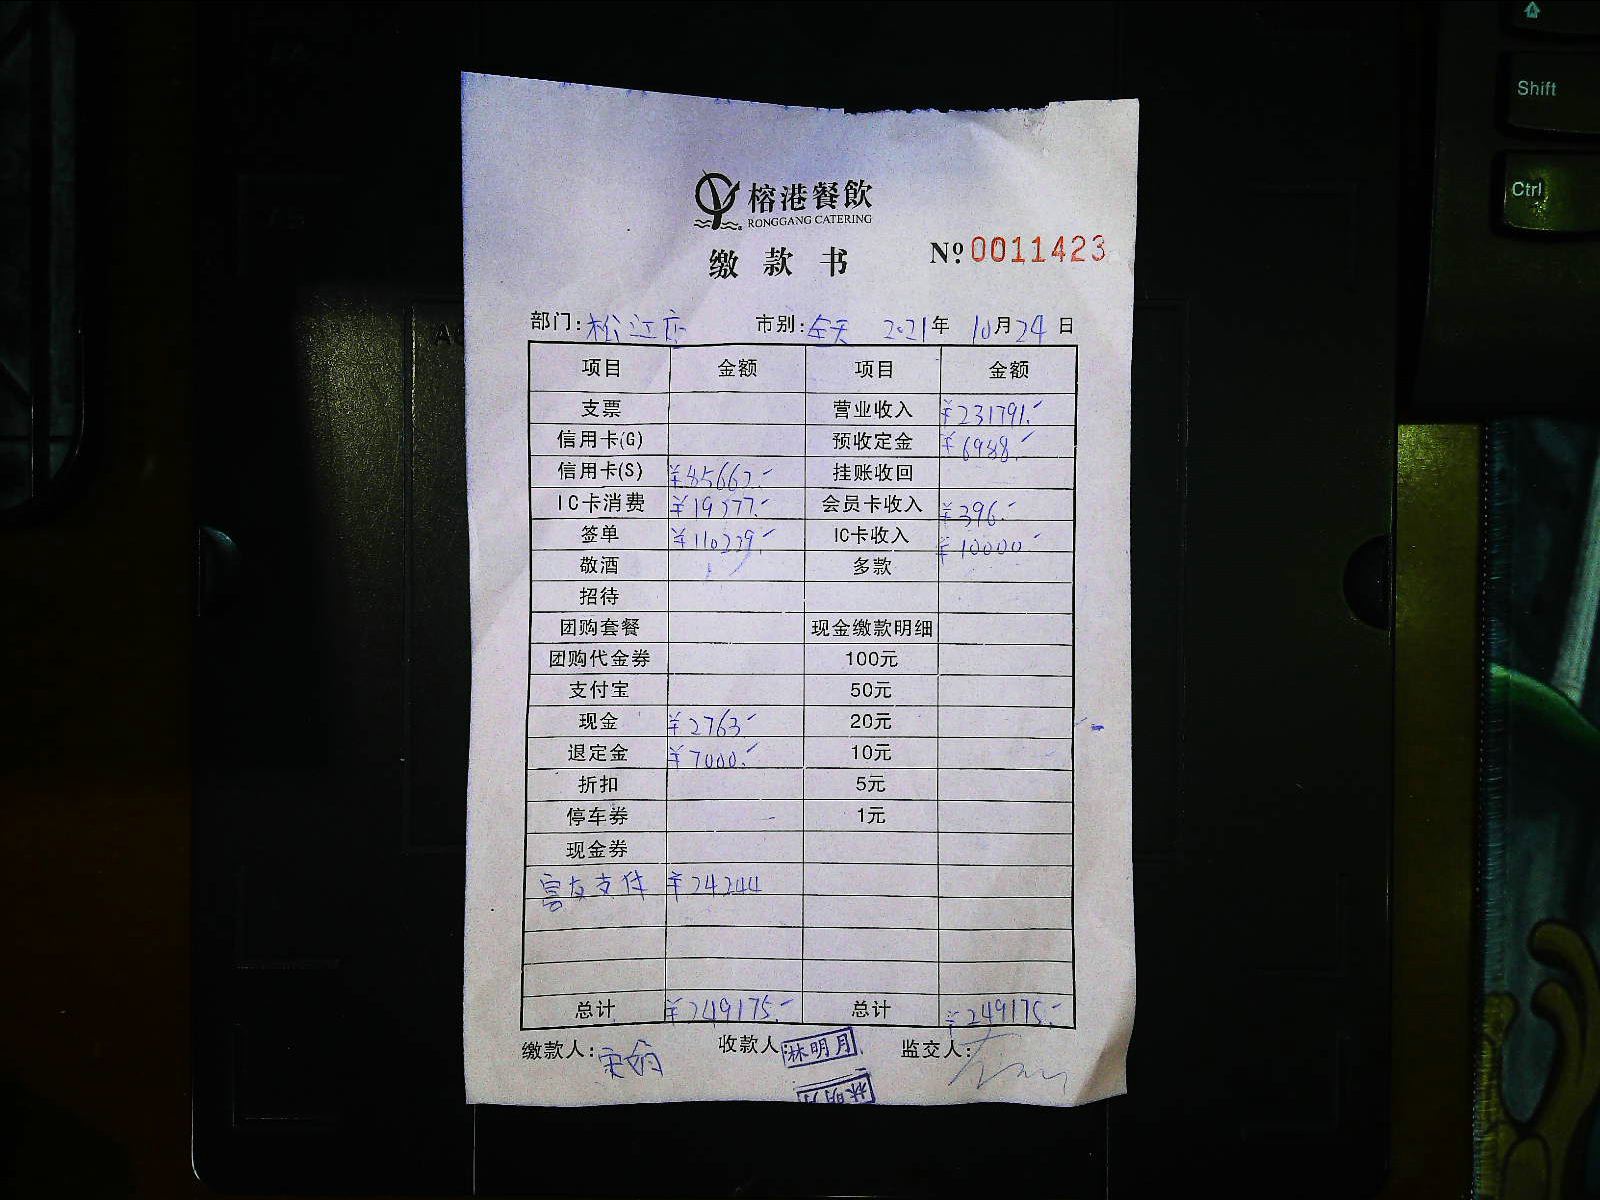 榕港餐飲
RONGGANG CATERING
缴款书 Nº 0011423
部门: 松江店 市别: 全天 2021年 10月24日
项目 金额 项目 金额
支票 营业收入 ¥231791.-
信用卡(G) 预收定金 ¥6988.-
信用卡(S) ¥85662.- 挂账收回
IC卡消费 ¥19277.- 会员卡收入 ¥396.-
签单 ¥110229.- IC卡收入 ¥10000.-
敬酒 多款
招待
团购套餐 现金缴款明细
团购代金券 100元
支付宝 50元
现金 ¥2763.- 20元
退定金 ¥7000.- 10元
折扣 5元
停车券 1元
现金券
富友支付 ¥24244
总计 ¥249175.- 总计 ¥249175.-
缴款人: 收款人: 林明月 监交人:
林明月
Shift
Ctrl